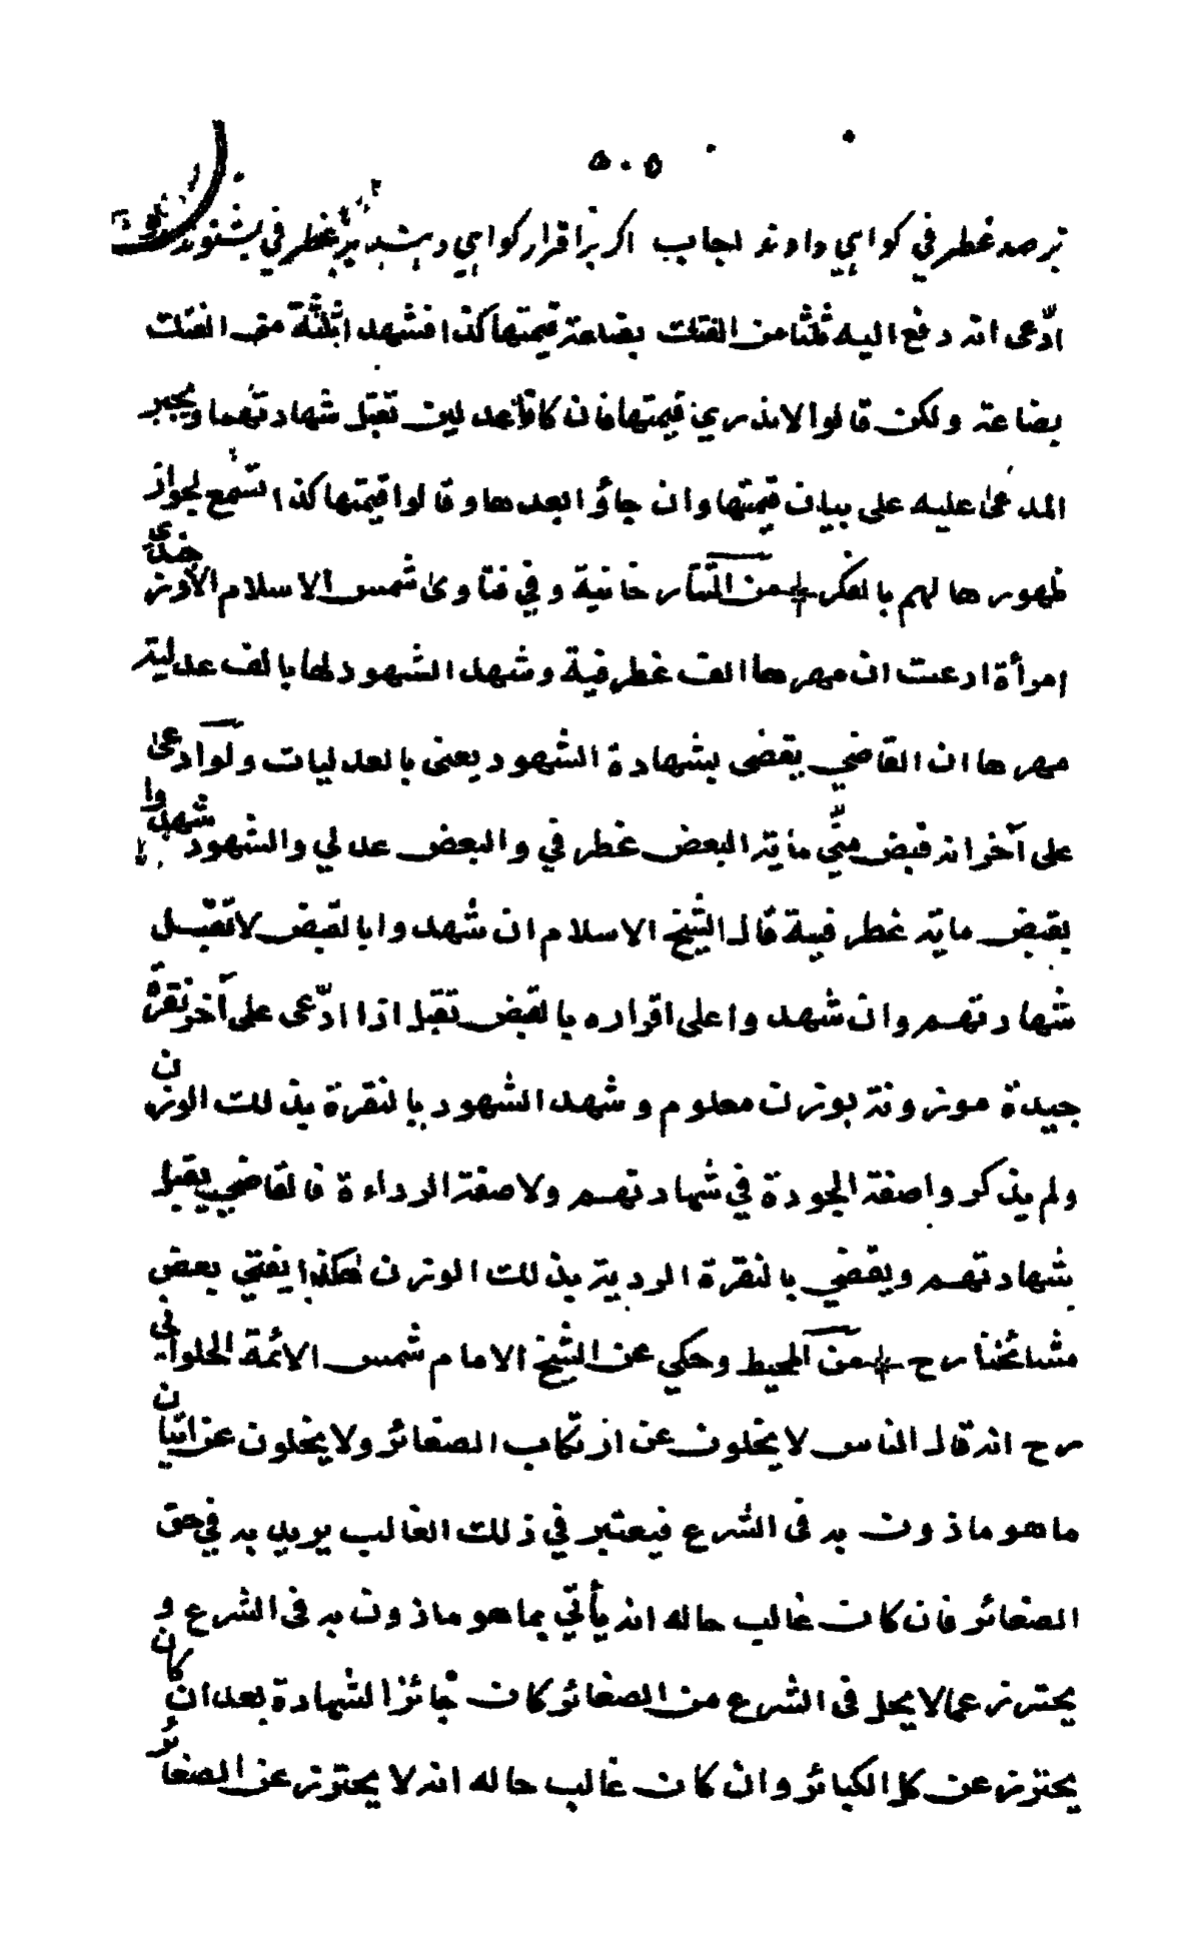 ٥٠٥
بر صد غطريفي كواهي دادند اجاب اكر بر اقرار كواهي بر غطريفي بشنوند
ادّعى انه دفع اليه ثلثا من الفتلت بضاعة قيمتها كذا فشهد ثلثة من الفتلت
بضاعة ولكن قالوا لا ندري قيمتها فان تقبل شهادتهما ويجبر
المدعى عليه على بيان قيمتها وان جاؤا بعدها وقالوا قيمتها كذا تسمع لجواز
ظهورها لهم بالفكر من التتارخانية وفي فتاوى شمس الاسلام الاوزجندي
امرأة ادعت ان مهرها الف غطرفية وشهد الشهود لها بالف عدلية
مهرها ان القاضي يقضى بشهادة الشهود يعنى بالعدليات ولو ادعى
على آخر انه قبض منّي مأية البعض غطرفي والبعض عدلي والشهود شهدوا
بقبض ماية غطرفية قال الشيخ الاسلام ان شهدوا بالقبض لا تقبل
شهادتهم وان شهدوا على اقراره بالقبض تقبل اذا ادّعى على آخر نقرة
جيدة موزونة بوزن معلوم وشهد الشهود بالنقرة بذلك الوزن
ولم يذكروا صفة الجودة في شهادتهم ولا صفة الرداءة فالقاضي يقبل
شهادتهم ويقضي بالنقرة الردية بذلك الوزن هكذا يفتي بعض
مشائخنا رح من المحيط وحكي عن الشيخ الامام شمس الائمة الحلواني
رح انه قال الناس لا يخلون عن ارتكاب الصغائر ولا يخلون عن اتيان
ما هو ماذون به فى الشرع فيعتبر في ذلك الغالب يريد به في حق
الصغائر فان كان غالب حاله انه يأتي بما هو ماذون به فى الشرع و
يحترز عما لا يحل فى الشرع من الصغائر كان جائز الشهادة بعد ان كان
يحترز عن كل الكبائر وان كان غالب حاله انه لا يحترز عن الصغائر